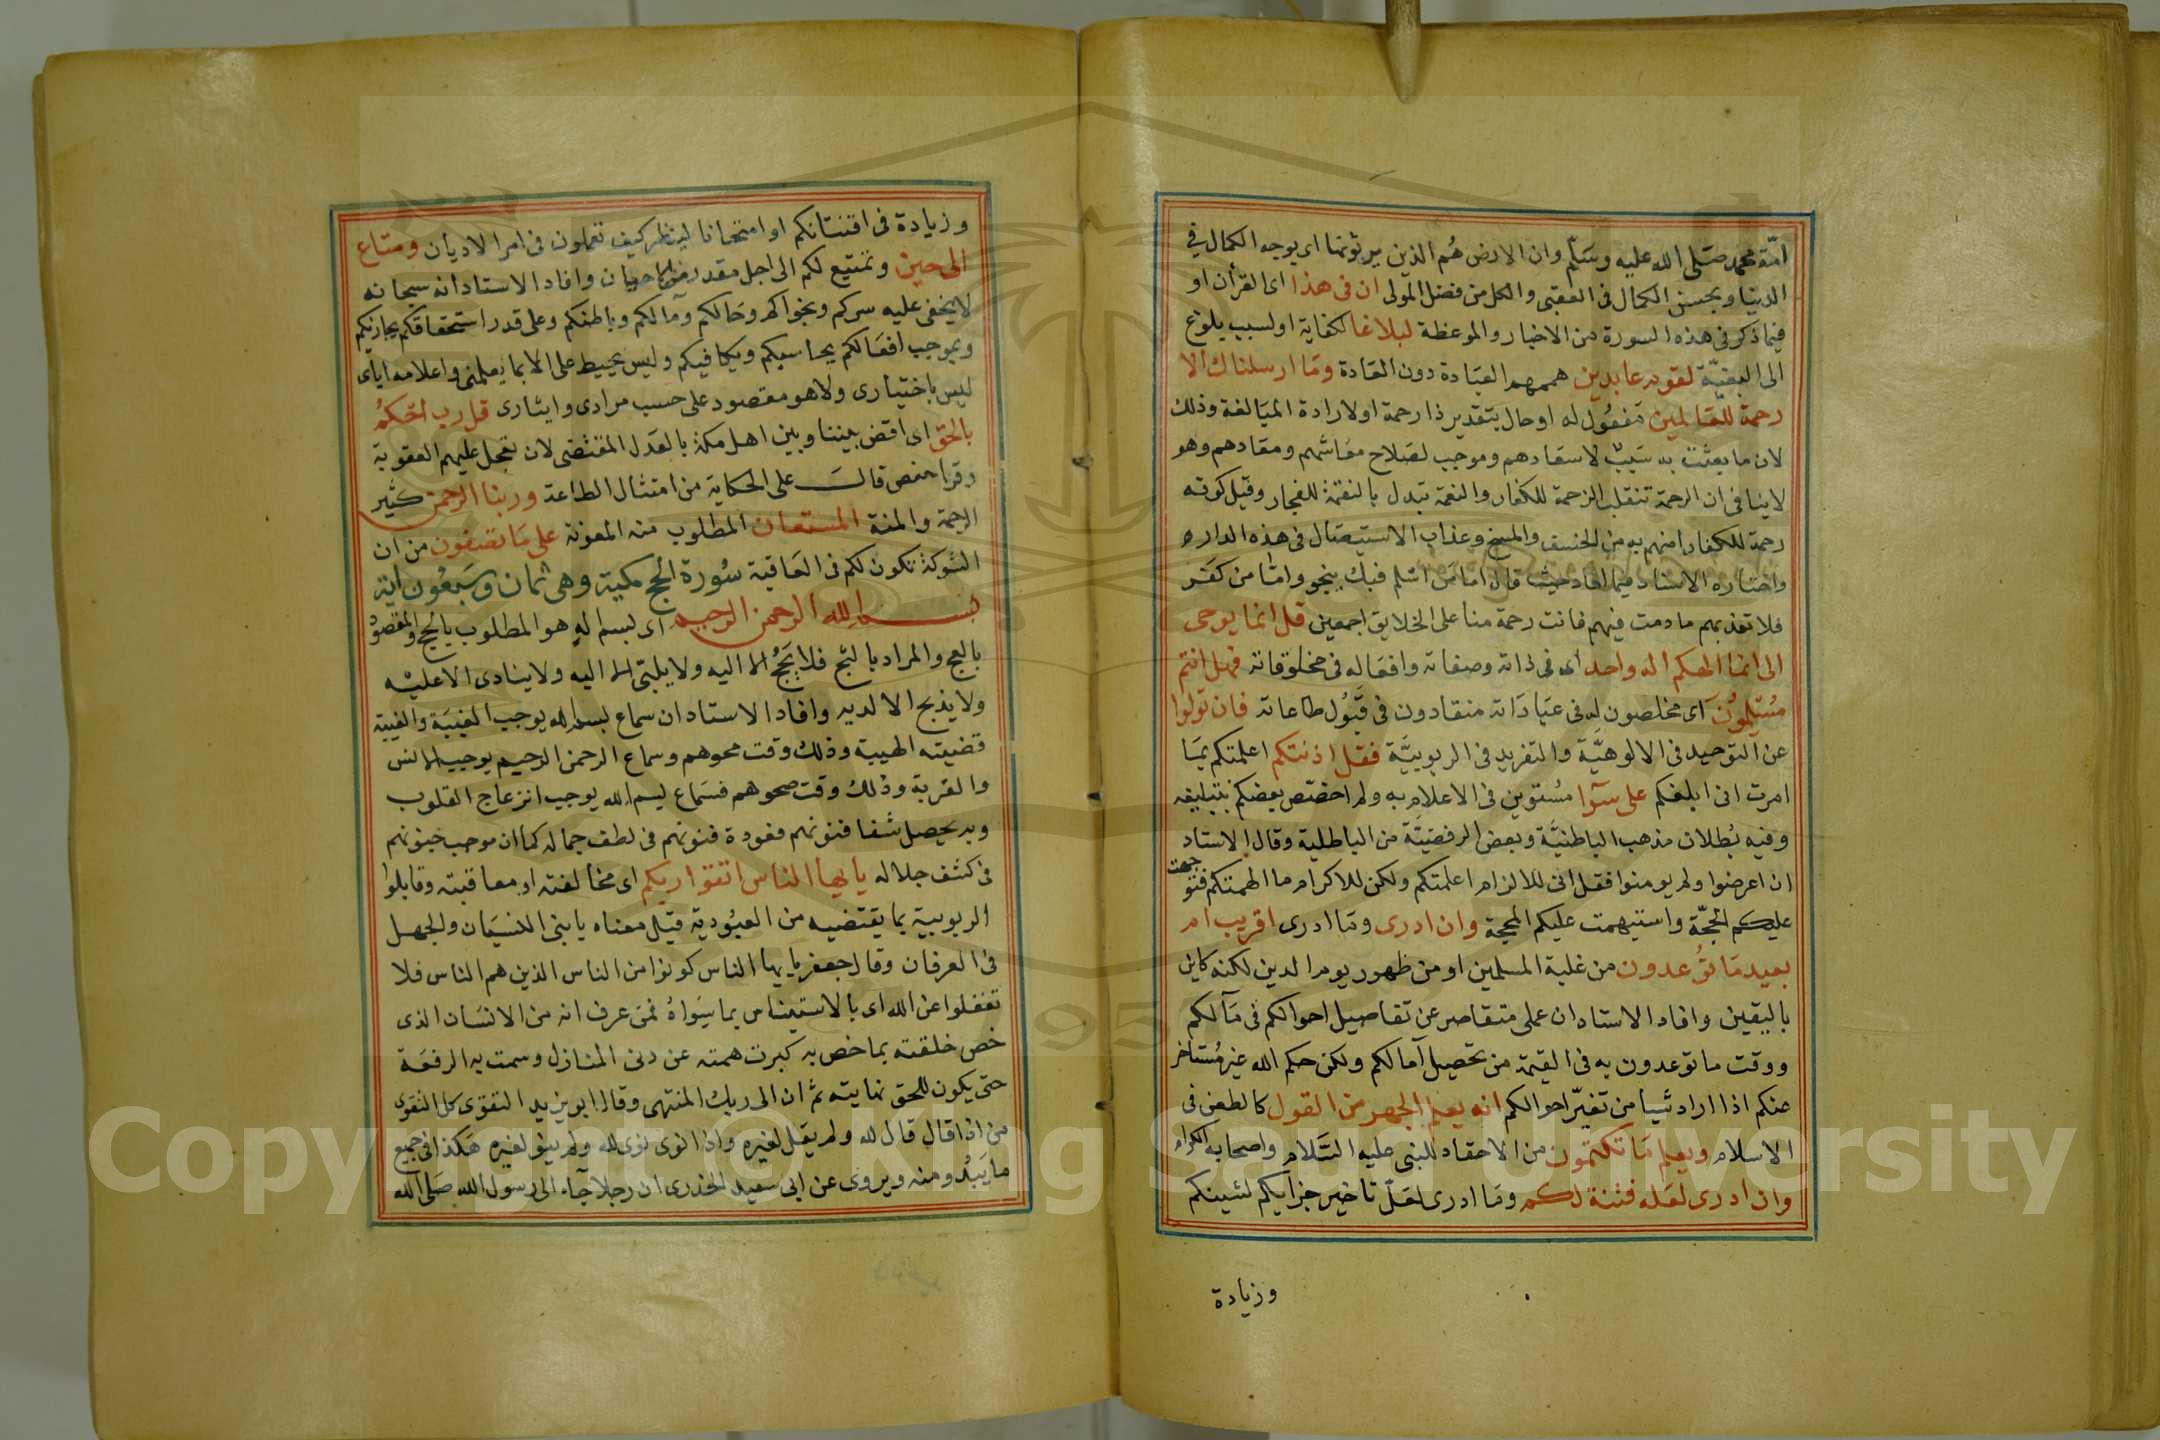 امّة محمد صَلى الله عليه وسَلّم وان الارض هُم الذين يرثونها اى بوجه الكمال فى
الدنيا وبحسن الكمال فى العقبى والكل من فضل المولى ان فى هذا اى القرأن او
فيما ذكر فى هذه السورة من الاخبار والموعظة لبلاغا لكفاية او لسبب بلوغ
الى البغيّة لقوم عابدين هممهم العبَادة دون العَادة ومَا ارسلناك الا
رحمة للعَالمين مَفعُول له او حال بتقدير ذا رحمة او لارادة المبَالغة وذلك
لان ما بعثت به سَببٌ لاسعَادهم وموجب لصَلاح معَاشهم ومعَادهم وهو
لاينافى ان الرحمة تنقلب الزحمة للكفار والنعمة تبدل بالنقمة للفجار وقيل كونه
رحمة للكفار امنهم به من الخسف والمسخ وعذاب الاستيصَال فى هذه الدار
واختاره الاستاد فيما افاد حيث قال اما من اسْلم فبك ينجو وامّا من كفَر
فلا نعذبهم ما دمت فيهم فانت رحمة منا على الخلايق اجمعين قل انما يوحى
الى انما الهكم اله واحد اى فى ذاته وصفاته وافعَاله فى مخلوقاته فهل انتم
مُسْلِمُون اى مخلصون له فى عبَادَاته منقادون فى قبُول طاعاته فان تولوا
عن التوحيد فى الالوهيَّة والتفريد فى الربوبيَّة فقل اذنتكم اعلمتكم بمَا
امرت انى ابلغكم على سَوَآ مسُتوين فى الاعلام به ولم اخصّص بعضكم بتبليغه
وفيه بُطلان مذهب الباطنيَّة وبعض الرفضيَّة من الباطلية وقال الاستاد
ان اعرضوا ولم يومنوا فقل انى للالزام اعلمتكم ولكن للاكرام ما الهمتكم فتوجهت
عليكم الحجّة واستبهمت عليكم المحجة وان ادرى ومَا ادرى اقريب ام
بعيد مَا تُوعدون من غلبة المسلمين او من ظهور يوم الدين لكنه كاين
باليقين وافاد الاستاد ان علمى متقاصر عن تفاصيل احوالكم فى مَآلكم
ووقت ما توعدون به فى القيمة من تحصيل آمالكم ولكن حكم الله غير مُستاخر
عنكم اذا اراد شيا من تغيّر احوالكم انه يعلم الجهر من القول كالطعن فى
الاسلام ويعلم مَا تكتمون من الاحقاد للنبى عليه السَّلام واصحابه الكرام
وان ادرى لعَله فتنة لكم ومَا ادرى لعَلّ تاخير جزايكم لشينكم
وزيادة
وزيادة فى افتتانكم او امتحانا لينظر كيف تعملون فى امر الاديان ومتاع
الى حين وتمتيع لكم الى اجل مقدر وافاد الاستاد انه سبحانه
لايخفى عليه سركم ونجواكم وحَالكم ومآلكم وباطنكم وعلى قدر استحقاقكم يجازيكم
وبموجب افعَالكم يحاسبكم ويكافيكم وليس يحيط على الا بما يعلمنى واعلامه اياى
ليس باختيارى ولا هو مقصود على حسب مرادى وايثارى قل رب احْكمْ
بالحق اى اقض بيننا وبين اهل مكة بالعَدل المقتضى لان تعجل عليهم العقوبة
وقرا حفص قال على الحكاية من امتثال الطاعة وربنا الرحمن كثير
الرحمة والمنة المستعان المطلوب منه المعونة على مَا تصفون من ان
الشوكة تكون لكم فى العَاقبة سُورة الحج مكية وهى ثمان وسَبعُون اية
بسم الله الرحمن الرحيم اى بسم اله هو المطلوب بالحج والمقصود
بالعج والمراد بالثج فلا يَحُجُّ الا اليه ولا يلبّى الا اليه ولا ينادى الا عليْه
ولا يذبح الا لديه وافاد الاستاد ان سماع بسم الله يوجب الغيبَة والغيبة
قضيته الهيبة وذلك وقت محوهم وسماع الرحمن الرحيم يوجب الانس
والقربة وذلك وقت صحوهم فسَماع بسم الله يوجب انزعاج القلوب
وبه يحصل شفا فنونهم مفقودة فنونهم فى لطف جماله كما ان موجب جنونهم
فى كشف جلاله يا يها الناس اتقوا ربكم اى مخالفته او معاقبته وقابلوا
الربوبية بما يقتضيه من العبُودية قيَل معناه يا بنى النسيَان والجهل
فى العرفان وقال جعفر يا يها الناس كونوا من الناس الذين هم الناس فلا
تغفلوا عن الله اى بالاستيناس بما سِوَاهُ فمَن عرف انه من الانسَان الذى
خص خلقته بما خص به كبرت همته عن دنى المنازل وسمت به الرفعَة
حتى يكون للحق نهايته ثم ان الى ربك المنتهى وقال ابو يزيد التقوى كل التقوى
من اذا قال قال لله ولم يقل لغيره واذا نوى نوى لله ولم ينو لغيره هَكذا فى جميع
ما يَبْدُو منه ويروى عن ابى سعيد الخدرى ان رجلا جآء الى رسول الله صَلى الله
Copyright © King Saud University